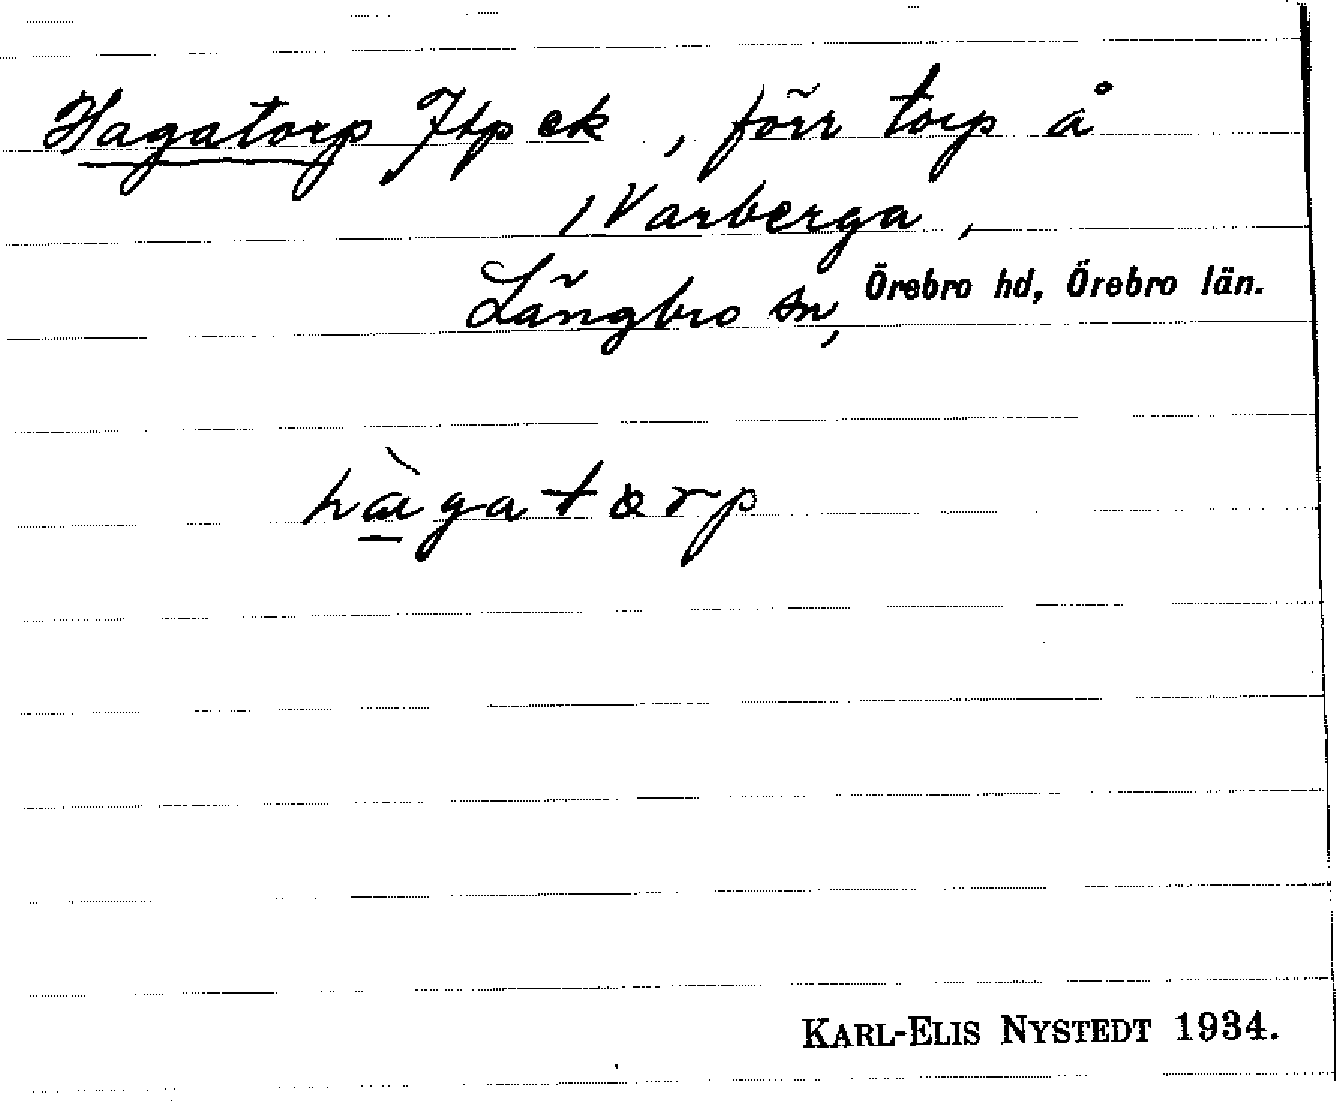 Hagatorp Jtp ek, förr torp å
1 Varberga,
Långbro sn, Örebro hd, Örebro län.
hàgatorp
KARL-ELIS NYSTEDT 1934.